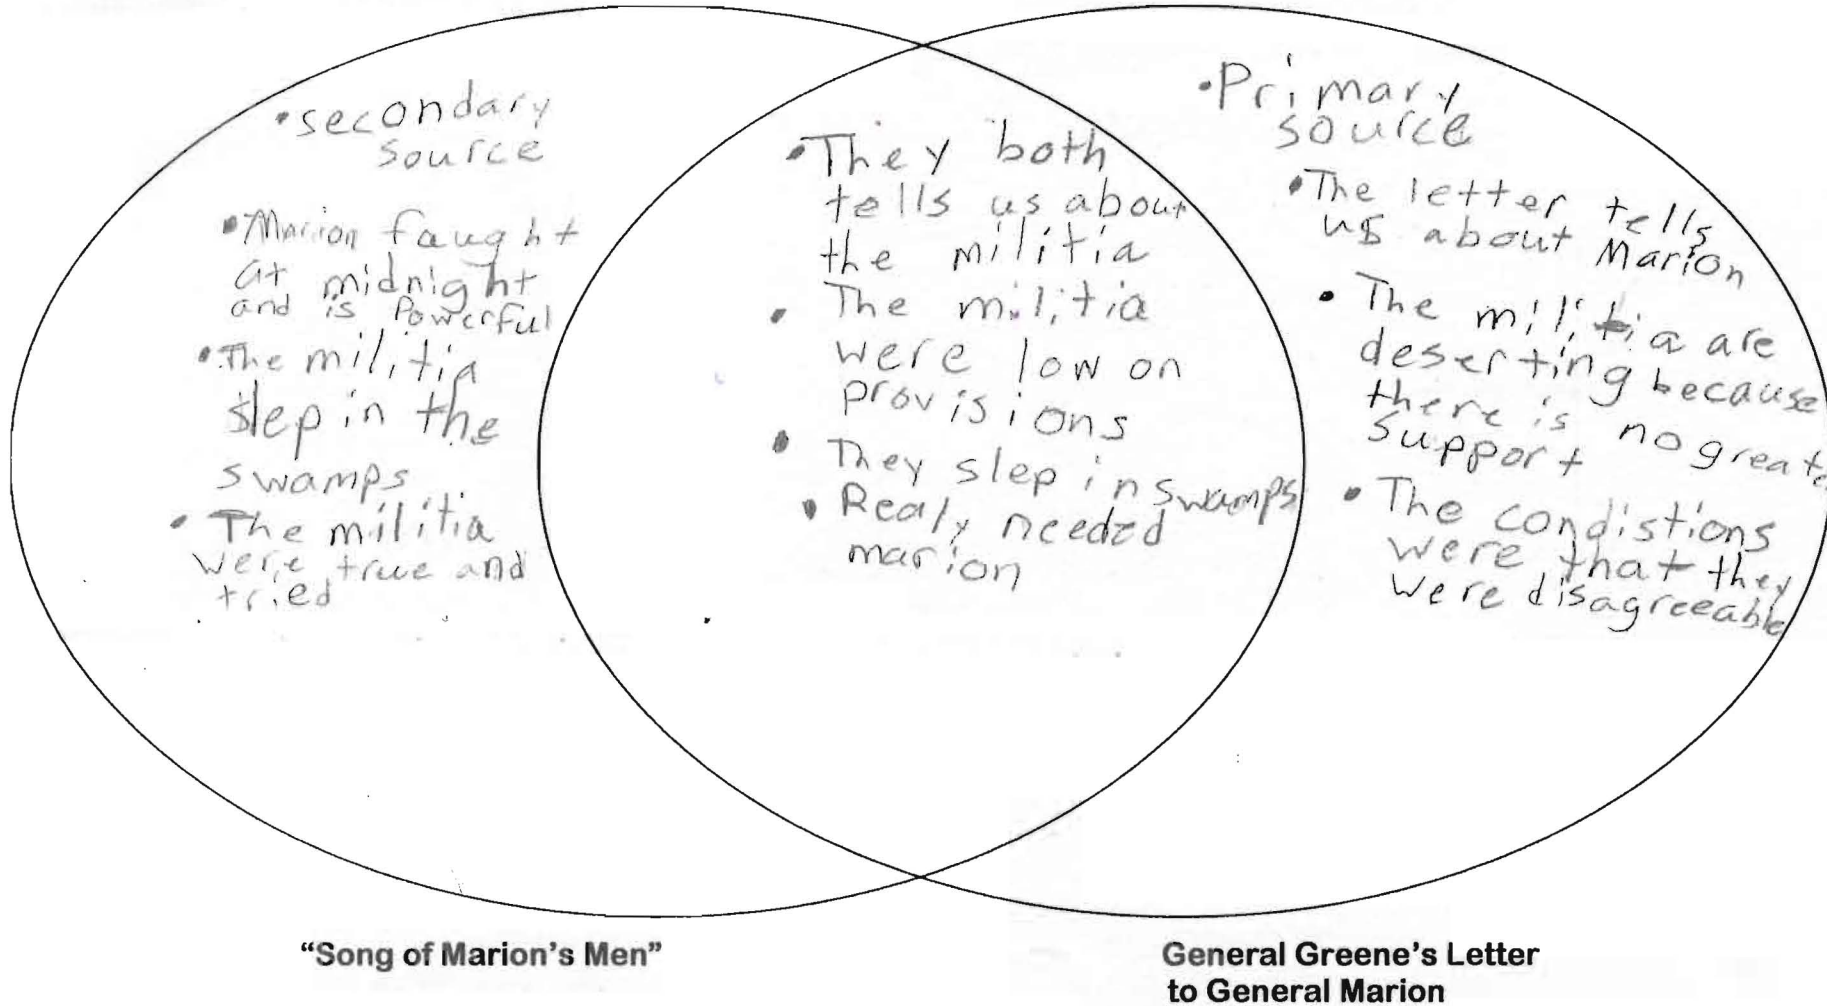 •secondary
source
•Marion faught
at midnight
and is Powerful
•The militia
slep in the
swamps
• The militia
were true and
tried
•They both
tells us about
the militia
• The militia
were low on
provisions
• They slep in swamps
• Realy needed
marion
•Primary
source
•The letter tells
us about Marion
• The militia are
deserting because
there is no greate
support
• The condistions
were that they
were disagreeable
“Song of Marion’s Men”
General Greene’s Letter
to General Marion